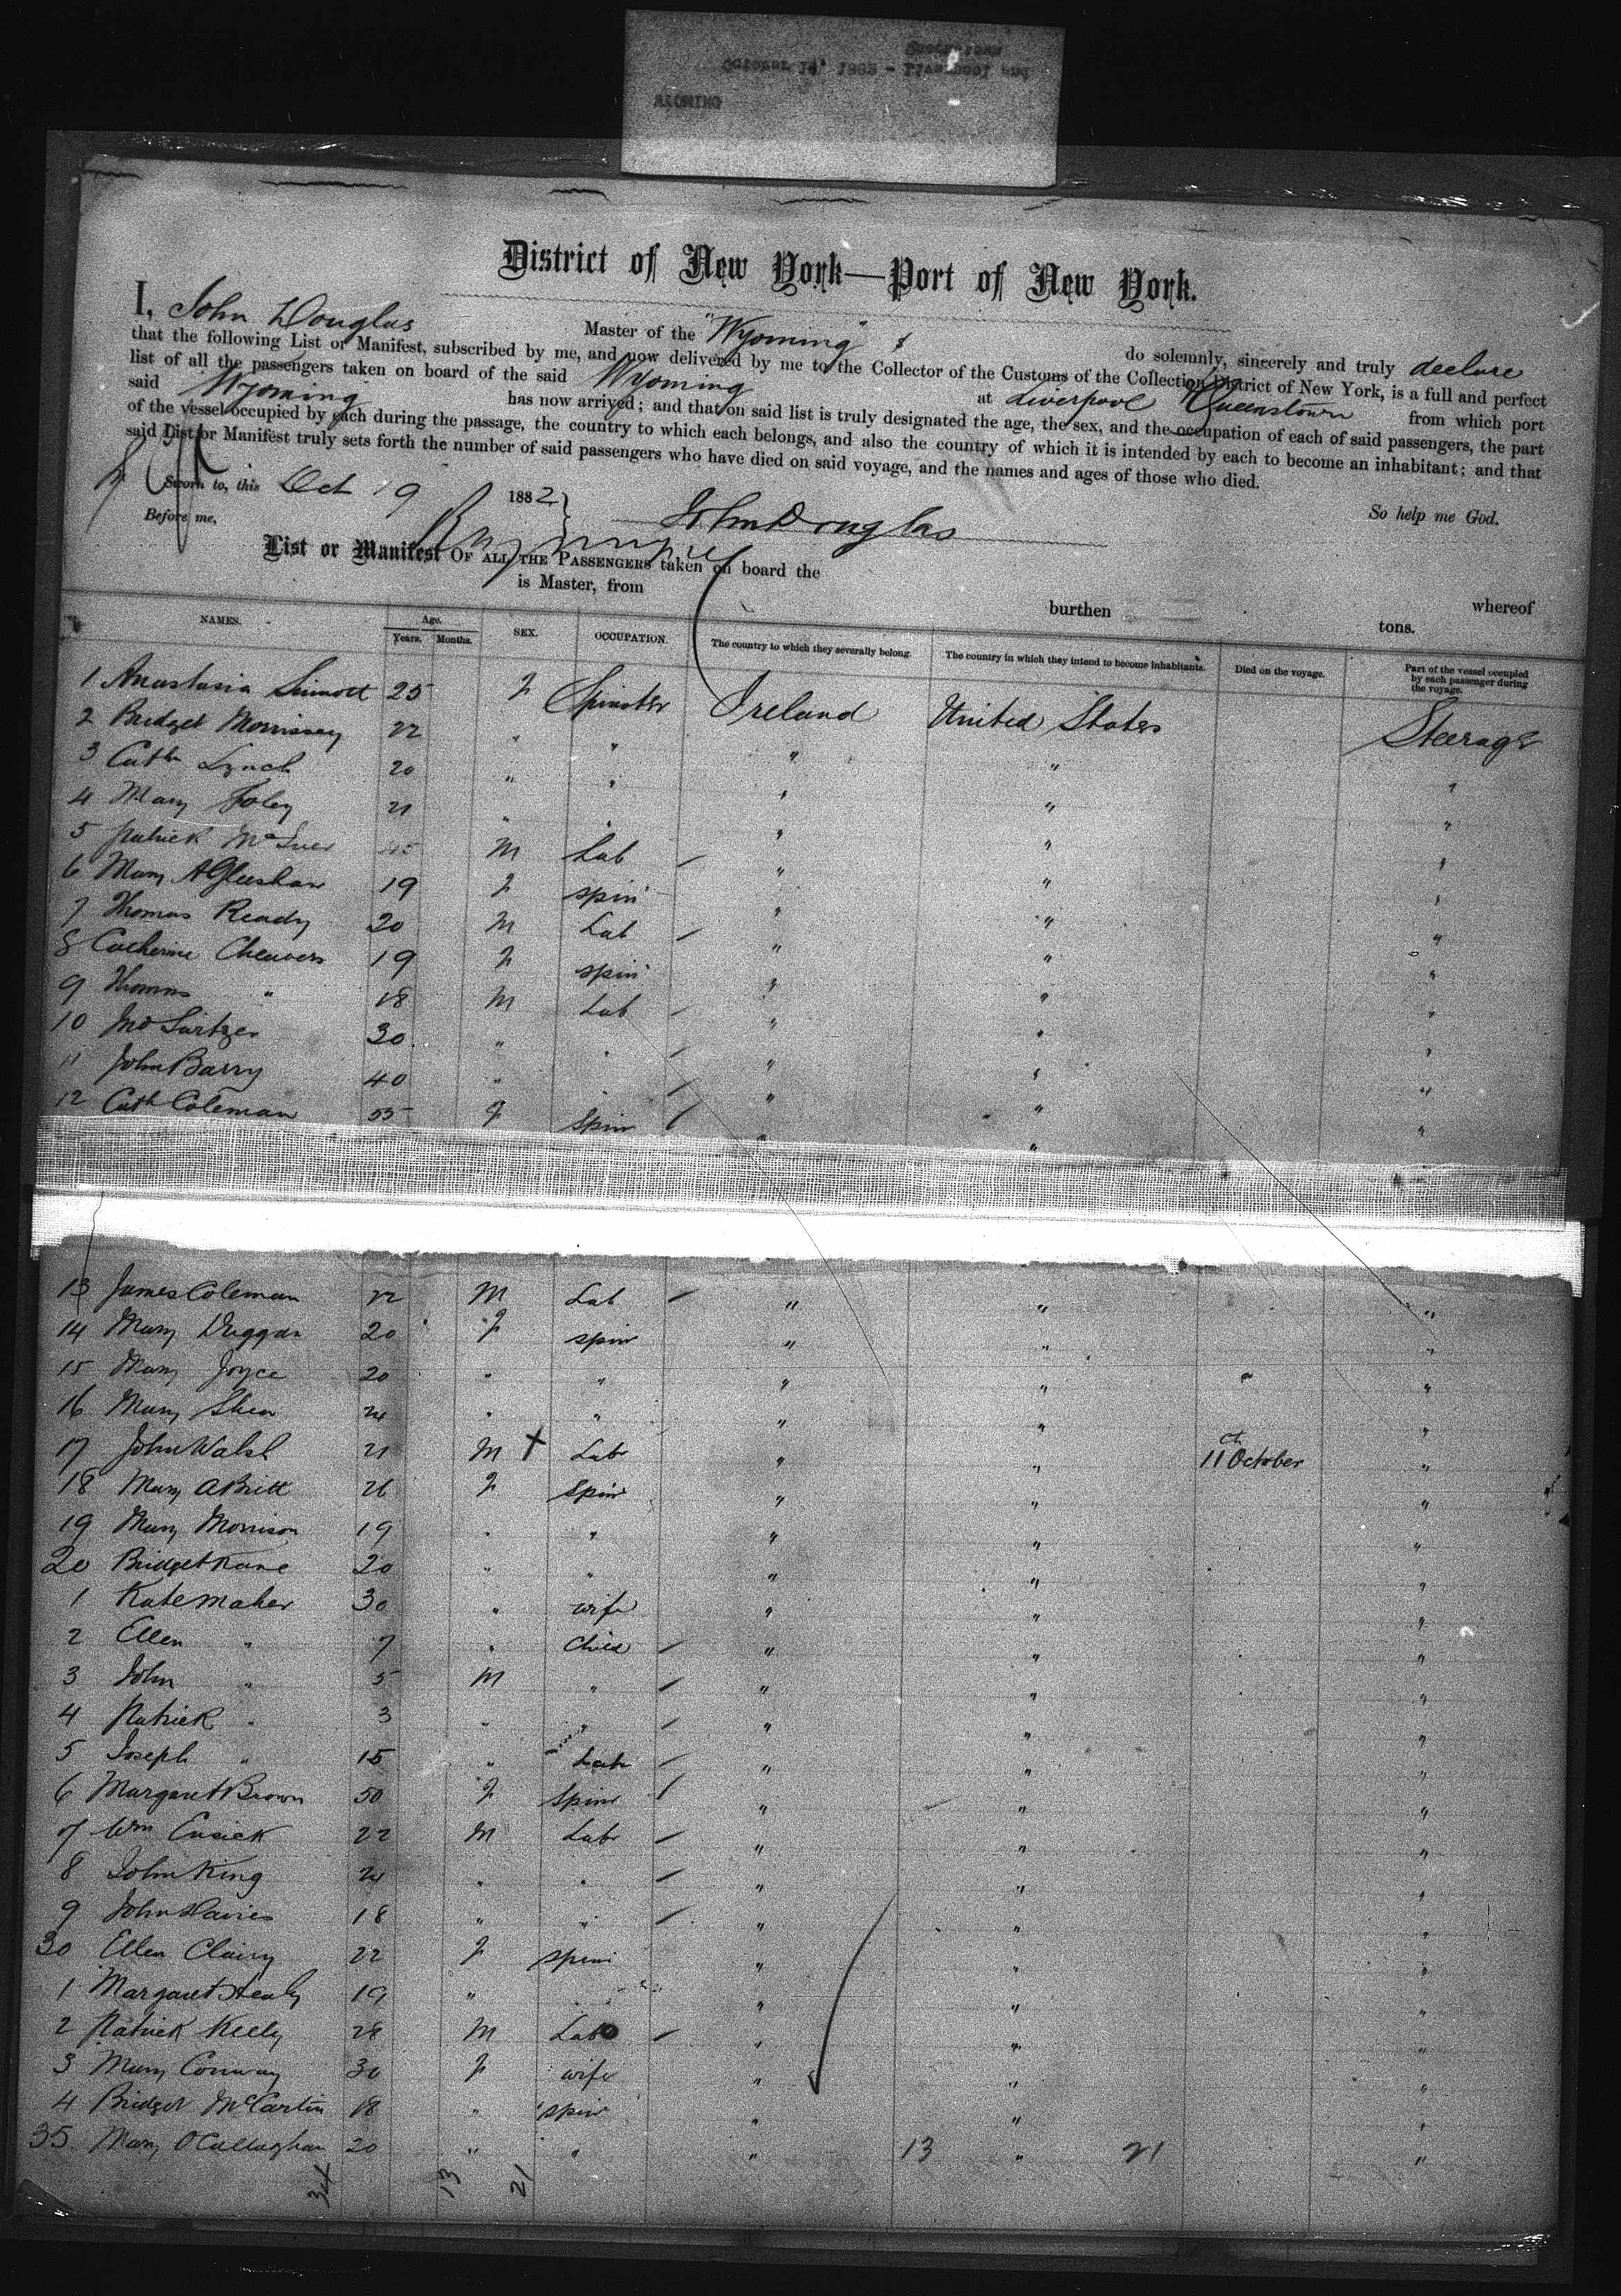 District of New York—Port of New York.
I, John Douglas Master of the "Wyoming" do solemnly, sincerely and truly declare
that the following List or Manifest, subscribed by me, and now delivered by me to the Collector of the Customs of the Collection District of New York, is a full and perfect
list of all the passengers taken on board of the said Wyoming at Liverpool Queenstown from which port
said Wyoming has now arrived; and that on said list is truly designated the age, the sex, and the occupation of each of said passengers, the part
of the vessel occupied by each during the passage, the country to which each belongs, and also the country of which it is intended by each to become an inhabitant; and that
said List or Manifest truly sets forth the number of said passengers who have died on said voyage, and the names and ages of those who died.
Sworn to, this Oct 19 1882 So help me God.
Before me, John Douglas
List or Manifest OF ALL THE PASSENGERS taken on board the
is Master, from burthen tons. whereof
NAMES. Age. Years. Months. SEX. OCCUPATION. The country to which they severally belong. The country in which they intend to become inhabitants. Died on the voyage. Part of the vessel occupied by each passenger during the voyage.
1 Anastasia Sinnott 25 F Spinster Ireland United States Steerage
2 Bridget Morrissey 22 " " " " "
3 Cathn Lynch 20 " " " " "
4 Mary Foley 21 " " " " "
5 Patrick 45 M Lab " " "
6 Mary A 19 F spin " " "
7 Thomas Ready 20 M Lab " " "
8 Catherine Cheavers 19 F spin " " "
9 Thomas " 18 M Lab " " "
10 Jno 30 " " " " "
11 John Barry 40 " " " "
12 Cath Coleman 55 F Spin " " "
13 James Coleman 22 M Lab " " "
14 Mary Duggan 20 F spin " " "
15 Mary Joyce 20 " " " " "
16 Mary Shea 24 " " " " "
17 John Walsh 21 M Lab " " 11th October "
18 Mary A Britt 26 F Spin " " "
19 Mary Morrison 19 " " " " "
20 Bridget Kane 20 " " " " "
1 Kate Maher 30 " wife " " "
2 Ellen " 7 " Child " " "
3 John " 5 M " " " "
4 Patrick " 3 " " " " "
5 Joseph " 15 " Lab " " "
6 Margaret Brown 50 F Spin " " "
7 Wm Cusick 22 M Lab " " "
8 John King 24 " " " " "
9 John 18 " " " " "
30 Ellen 22 F spin " " "
1 Margaret Healy 19 " " " " "
2 Patrick Kelly 28 M Lab " " "
3 Mary Conway 30 F wife " " "
4 Bridget McCartin 18 " spin " " "
35 Mary O'Callaghan 20 " " " 13 " 21 "
34 13 21